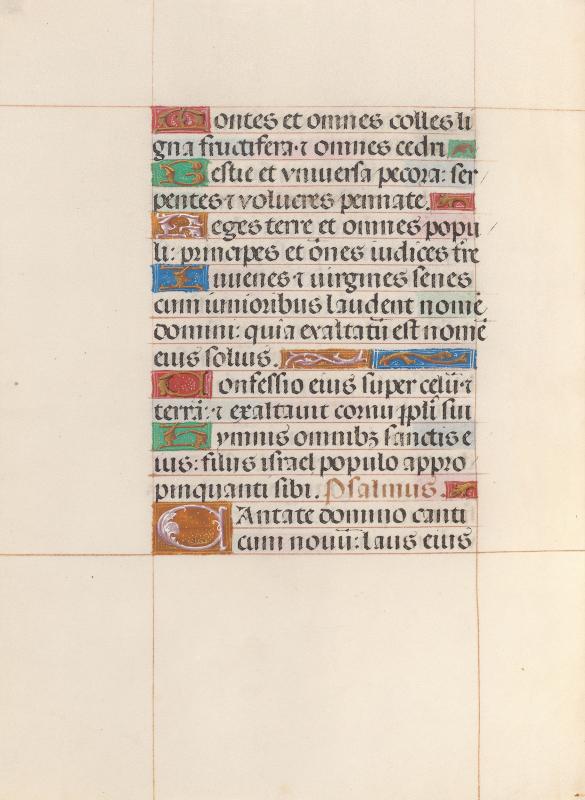 Montes et omnes colles li
gna fructifera: ⁊ omnes cedri
Bestie et vniuersa pecora: ser
pentes ⁊ volucres pennate.
Reges terre et omnes popu
li: principes et ōnes iudices tre
Iuuenes ⁊ uirgines senes
cum iunioribus laudent nomē
domini: quia exaltatū est nomē
eius solius.
Confessio eius super celū: ⁊
terrā: ⁊ exaltauit cornu ppli sui
Hymnus omnibꝫ sanctis e
ius: filiis israel populo appro
pinquanti sibi. Psalmus.
CAntate domino canti
cum nouū: laus eius